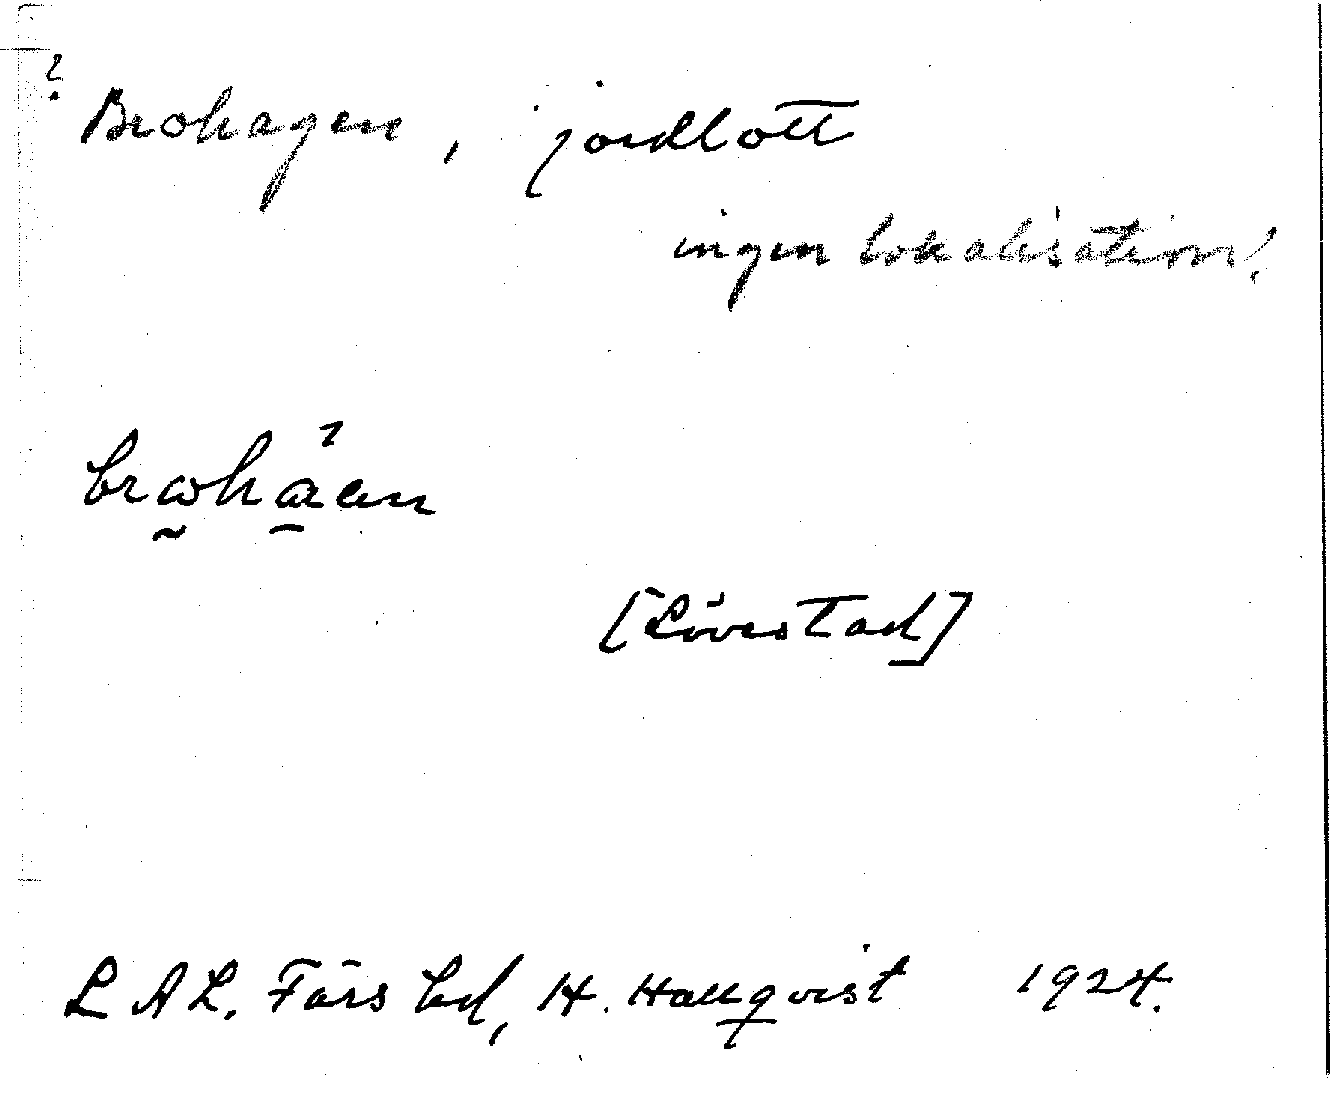 ? Brohagen, jordlott
ingen lokalisation!
[Lövestad]
LAL. Färs hd, H. Hallqvist 1924.